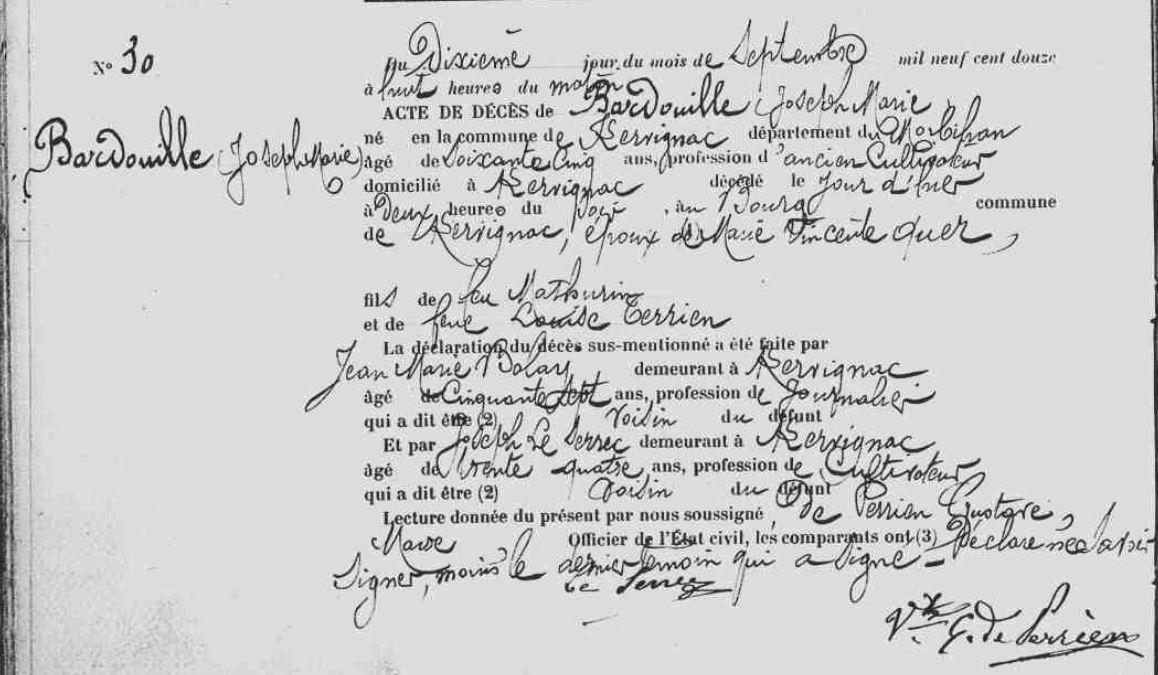 N° 30
Du Dixième jour du mois de Septembre mil neuf cent douze
à huit heures du matin
ACTE DE DÉCÈS de Bardouille Joseph Marie
Bardouille (Joseph Marie)
né en la commune de Kervignac département du Morbihan
âgé de soixante cinq ans, profession d'ancien Cultivateur
domicilié à Kervignac décédé le jour d'hier
à Deux heures du soir, au Bourg commune
de Kervignac, époux de Marie Vincente Quer,
fils de feu Mathurin
et de feue Louise Terrien
La déclaration du décès sus-mentionné a été faite par
Jean Marie Bolay demeurant à Kervignac
âgé de Cinquante Sept ans, profession de Journalier
qui a dit être (2) Voisin du défunt
Et par Joseph Le Serrec demeurant à Kervignac
âgé de trente quatre ans, profession de Cultivateur
qui a dit être (2) Voisin du défunt
Lecture donnée du présent par nous soussigné, De Perrien Gustave,
Maire Officier de l'État civil, les comparants ont (3) Déclaré ne savoir
signer, moins le dernier témoin qui a signé -
Le Serrec
Vte G. de Perrien